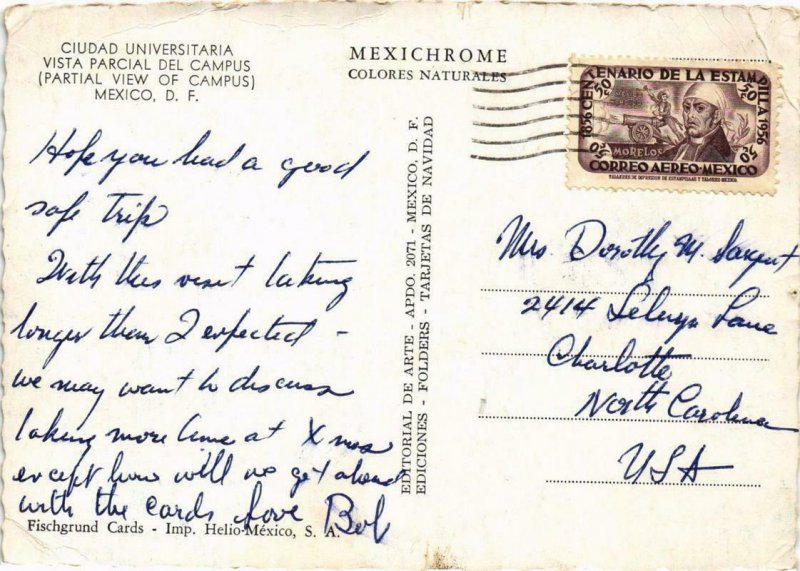 CIUDAD UNIVERSITARIA
VISTA PARCIAL DEL CAMPUS
(PARTIAL VIEW OF CAMPUS)
MEXICO, D. F.
Hope you had a good
safe trip
With this visit taking
longer then I expected -
we may want to discuss
taking more time at Xmas
except how will we get ahead
with the cards Love Bob
Fischgrund Cards - Imp. Helio-México, S. A.
EDITORIAL DE ARTE - APDO. 2071 - MEXICO, D. F.
EDICIONES - FOLDERS - TARJETAS DE NAVIDAD
MEXICHROME
COLORES NATURALES
1856 CENTENARIO DE LA ESTAMPILLA 1956
50c 50c
MORELOS
50c 50c
CORREO AEREO-MEXICO
Mrs Dorothy M. Sargent
2414 Selwyn Lane
Charlotte
North Carolina
USA